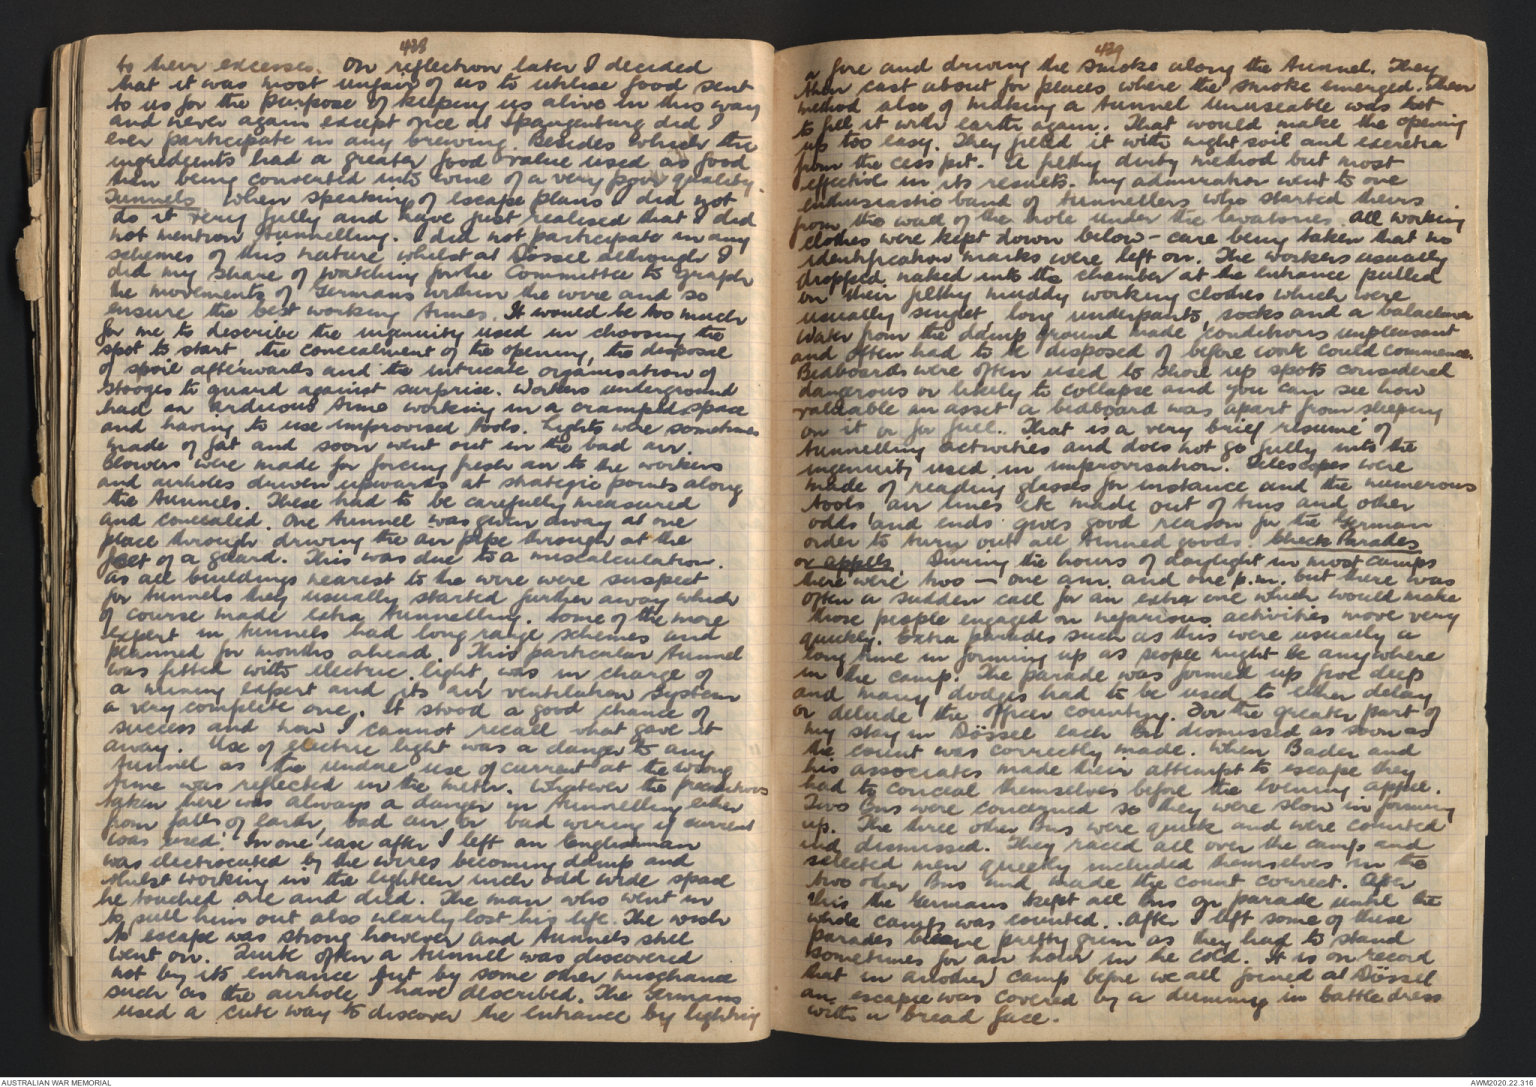 438
to their excesses. On reflection later I decided
that it was most unfair of us to utilise food sent
to us for the purpose of keeping us alive in this way
and never again except once at Spangenburg did I
ever participate in any brewing. Besides which the
ingredients had a greater food value used as food
then being converted into wine of a very poor quality.
Tunnels When speaking of escape plans I did not
do it very fully and have just realised that I did
not mention tunnelling. I did not participate in any
schemes of this nature whilst at Dössel although I
did my share of watching for the Committee to graph
the movements of Germans within the wire and so
ensure the best working times. It would be too much
for me to describe the ingenuity used in choosing the
spot to start, the concealment of the opening, the disposal
of spoil afterwards and the intricate organisation of
stooges to guard against surprise. Workers underground
had an arduous time working in a cramped space
and having to use improvised tools. Lights were sometimes
made of fat and soon went out in the bad air.
Blowers were made for forcing fresh air to the workers
and airholes driven upwards at strategic points along
the tunnels. These had to be carefully measured
and concealed. One tunnel was given away at one
place through driving the air pipe through at the
feet of a guard. This was due to a miscalculation.
as all buildings nearest to the wire were suspect
for tunnels they usually started further away which
of course made extra tunnelling. Some of the more
expert in tunnels had long range schemes and
planned for months ahead. This particular tunnel
was fitted with electric light, was in charge of
a mining expert and its air ventilation system
a very complete one. It stood a good chance of
success and now I cannot recall what gave it
away. Use of electric light was a danger to any
tunnel as the undue use of current at the wrong
time was reflected in the meter. Whatever the precautions
taken there was always a danger in tunnelling either
from falls of earth, bad air or bad wiring if current
was used. In one case after I left an Englishman
was electrocuted by the wires becoming damp and
whilst working in the eighteen inch odd wide space
he touched one and died. The man who went in
to pull him out also nearly lost his life. The wish
to escape was strong however and tunnels still
went on. Quite often a tunnel was discovered
not by its entrance but by some other mischance
such as the airhole I have described. The Germans
used a cute way to discover the entrance by lighting
439
a fire and driving the smoke along the tunnel. They
then cast about for places where the smoke emerged. Their
method also of making a tunnel unuseable was not
to fill it with earth again. That would make the opening
up too easy. They filled it with night soil and excretia
from the cess pit. A filthy dirty method but most
effective in its results. My admiration went to one
enthusiastic band of tunnellers who started theirs
from the wall of the hole under the lavatories. All working
clothes were kept down below - care being taken that no
identification marks were left on. The workers usually
dropped naked into the chamber at the entrance pulled
on their filthy muddy working clothes which were
usually singlet, long underpants, socks and a balaclava
Water from the damp ground made conditions unpleasant
and often had to be disposed of before work could commence.
Bedboards were often used to shore up spots considered
dangerous or likely to collapse and you can see how
valuable an asset a bedboard was apart from sleeping
on it or for fuel. That is a very brief resumé of
tunnelling activities and does not go fully into the
ingenuity used in improvisation. Telescopes were
made of reading glasses for instance and the numerous
tools, air lines etc made out of tins and other
odds and ends gives good reason for the German
order to turn out all tinned goods. Check Parades
or appels. During the hours of daylight in most camps
there were two - one a.m. and one p.m. but there was
often a sudden call for an extra one which would make
those people engaged on nefarious activities move very
quickly. Extra parades such as this were usually a
long time in forming up as people might be anywhere
in the camp. The parade was formed up five deep
and many dodges had to be used to either delay
or delude the officer counting. For the greater part of
my stay in Dössel each Bn dismissed as soon as
the count was correctly made. When Bader and
his associates made their attempt to escape they
had to conceal themselves before the evening appel.
Two Bns were concerned so they were slow in forming
up. The three other Bns were quick and were counted
and dismissed. They raced all over the camp and
selected men quickly included themselves in the
two other Bns and made the count correct. After
this the Germans kept all Bns on parade until the
whole camp was counted. After I left some of these
parades became pretty grim as they had to stand
sometimes for an hour in the cold. It is on record
that in another camp before we all joined at Dössel
an escapee was covered by a dummy in battle dress
with a bread face.
AUSTRALIAN WAR MEMORIAL
AWM2020.22.316